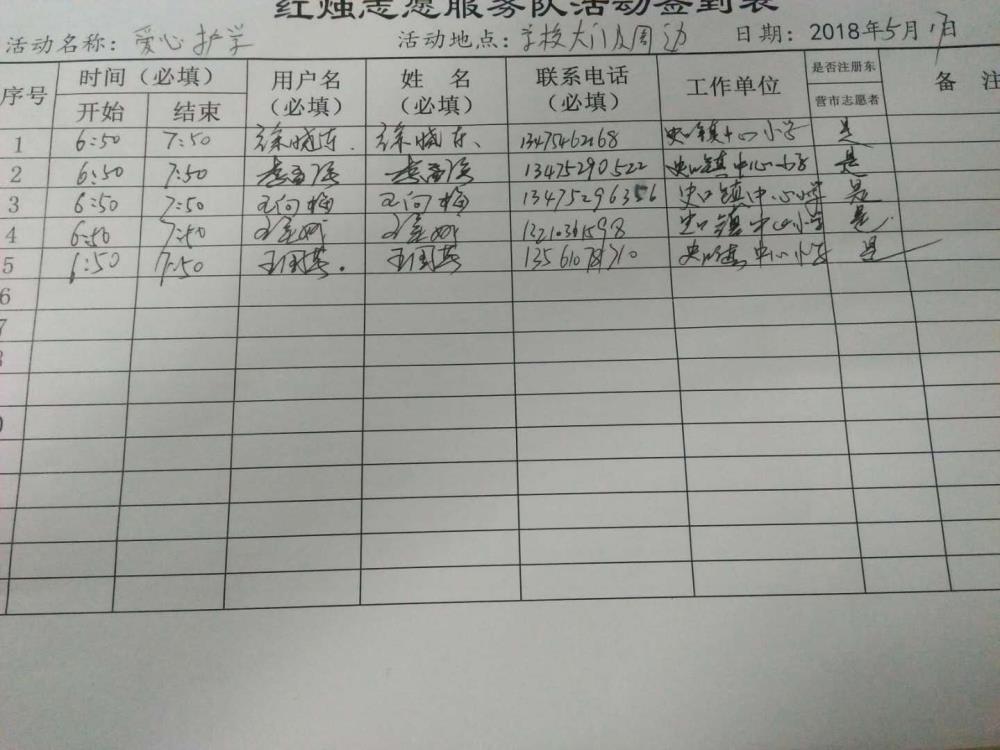 红烛志愿服务队活动签到表
活动名称: 爱心护学 活动地点: 学校大门及周边 日期: 2018年5月 日
序号 时间（必填） 用户名（必填） 姓 名（必填） 联系电话（必填） 工作单位 是否注册东营市志愿者 备 注
开始 结束
1 6:50 7:50 徐晓东. 徐晓东、 13475462168 史口镇中心小学 是
2 6:50 7:50 13475290522 史口镇中心小学 是
3 6:50 7:50 王向梅 王向梅 13475296356 史口镇中心小学 是
4 6:50 7:50 史口镇中心小学 是
5 6:50 7:50 史口镇中心小学 是
6